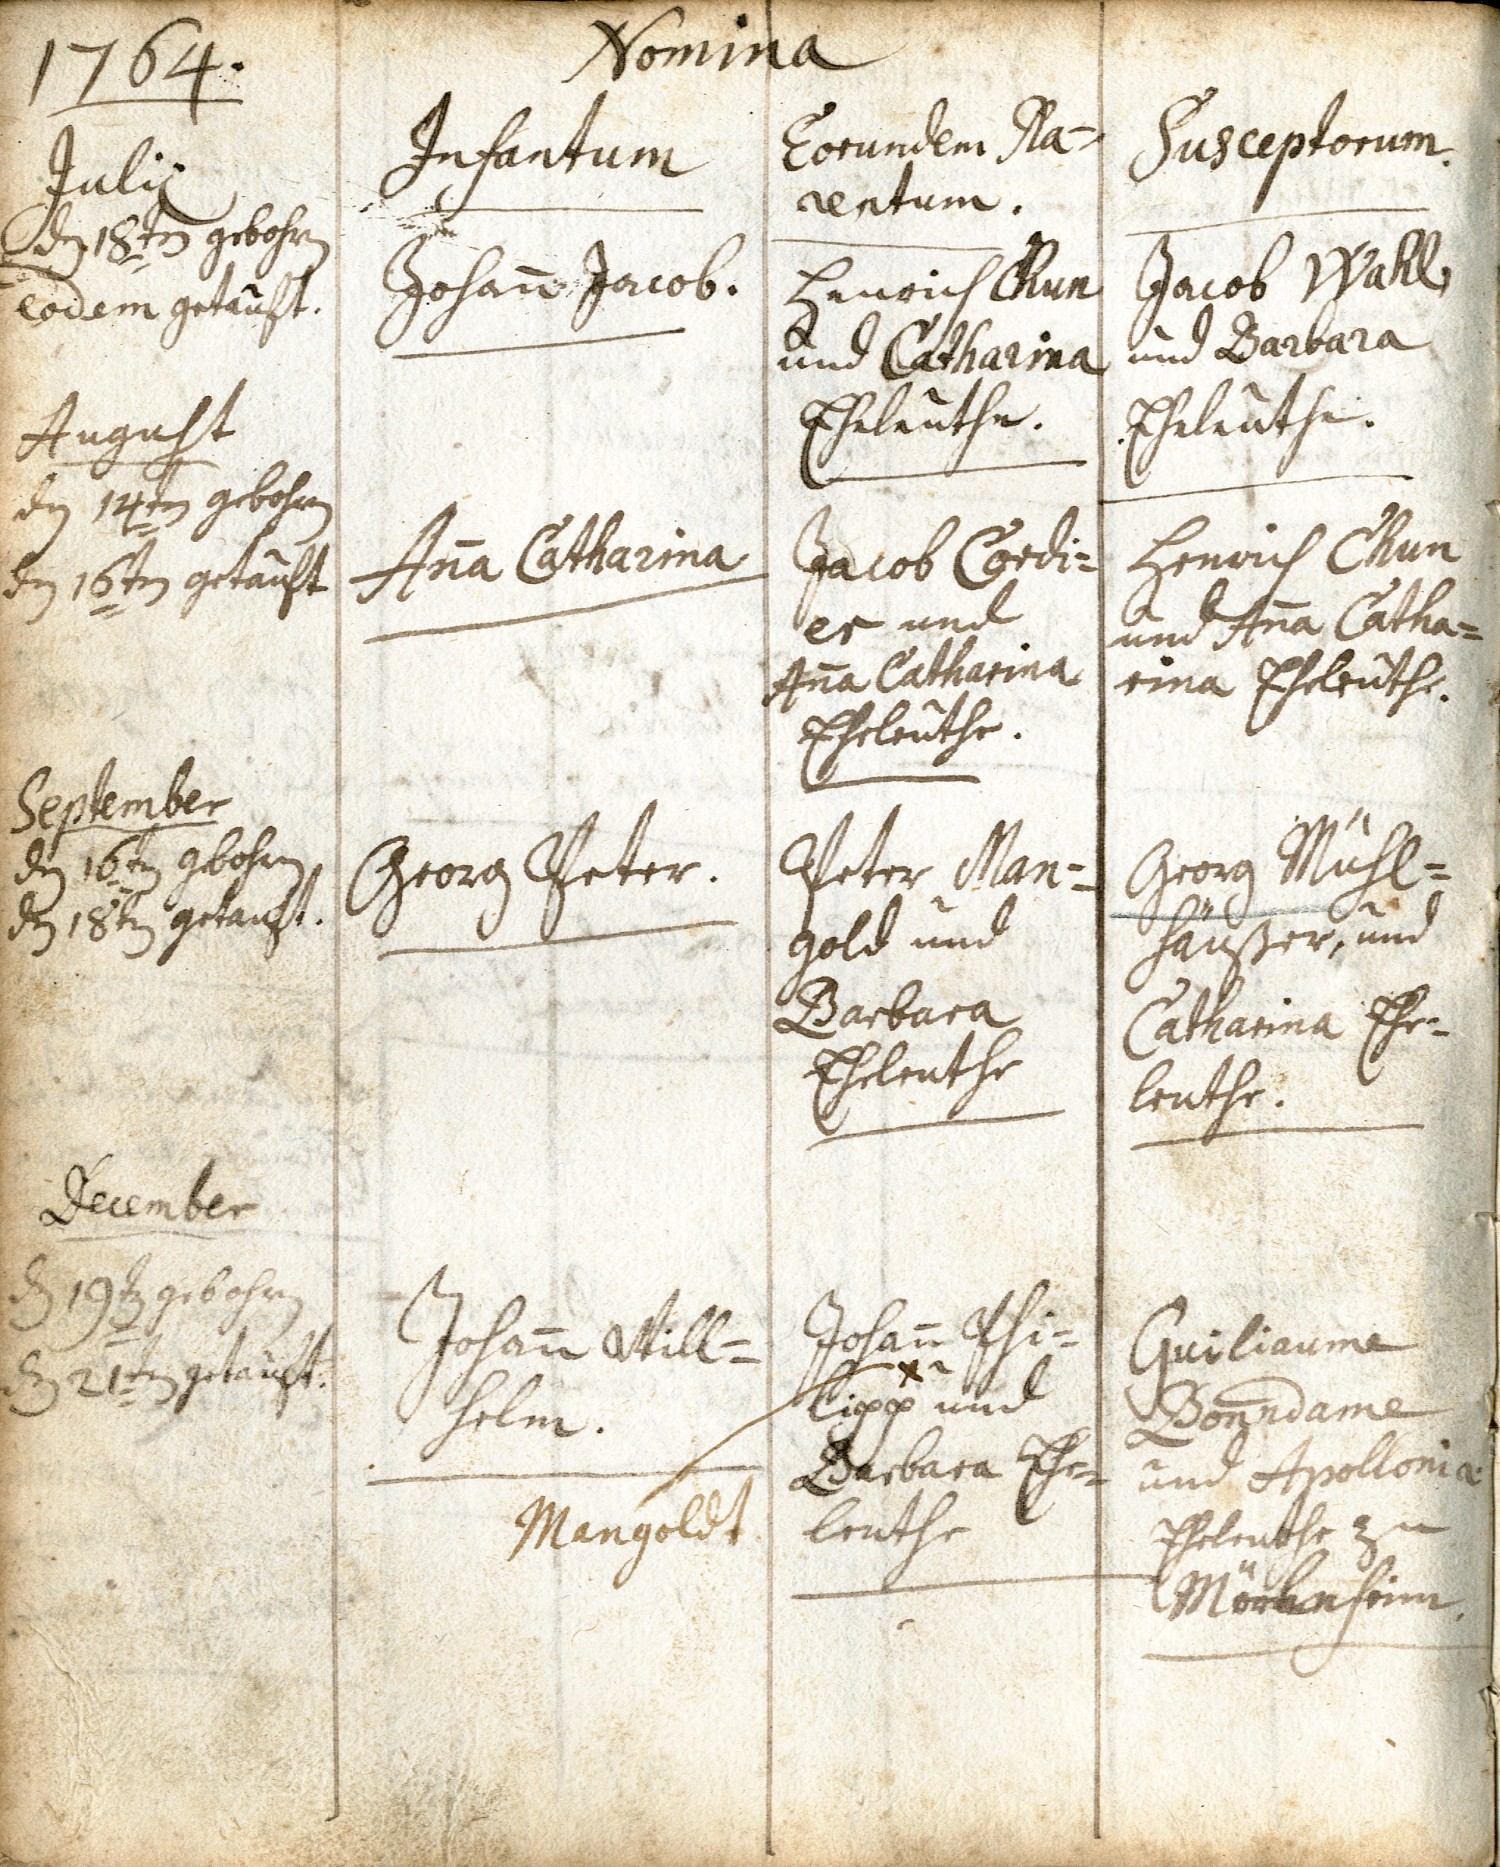 1764.
Nomina
Infantum
Eorundem Pa=
rentum.
Susceptorum.
Julij
den 18ten gebohren
eodem getaufft.
Johann Jacob.
Henrich Chun
und Catharina
Eheleuthe.
Jacob Wahl
und Barbara
Eheleuthe.
August
den 14ten gebohren
den 16ten getaufft
Anna Catharina
Jacob Cordi=
er und
Anna Catharina
Eheleuthe.
Henrich Chun
und Anna Catha=
rina Eheleuthe.
September
den 16ten gbohren
den 18ten getaufft.
Georg Peter.
Peter Man=
gold und
Barbara
Eheleuthe
Georg Mühl=
häußer, und
Catharina Ehe=
leuthe.
December
den 19ten gebohren
den 21ten getaufft.
Johann Will=
helm.
Mangoldt
Johann Phi=
lipp und
Barbara Ehe=
leuthe
Guiliaume
Bonndame
und Apollonia
Eheleuthe zu